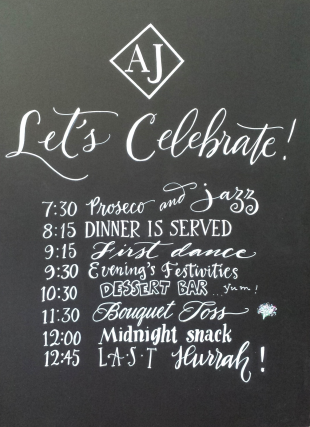 AJ
Let's Celebrate!
7:30 Proseco and jazz
8:15 DINNER IS SERVED
9:15 First dance
9:30 Evening's Festivities
10:30 DESSERT BAR ...yum!
11:30 Bouquet Toss
12:00 Midnight snack
12:45 L·A·S·T Hurrah!